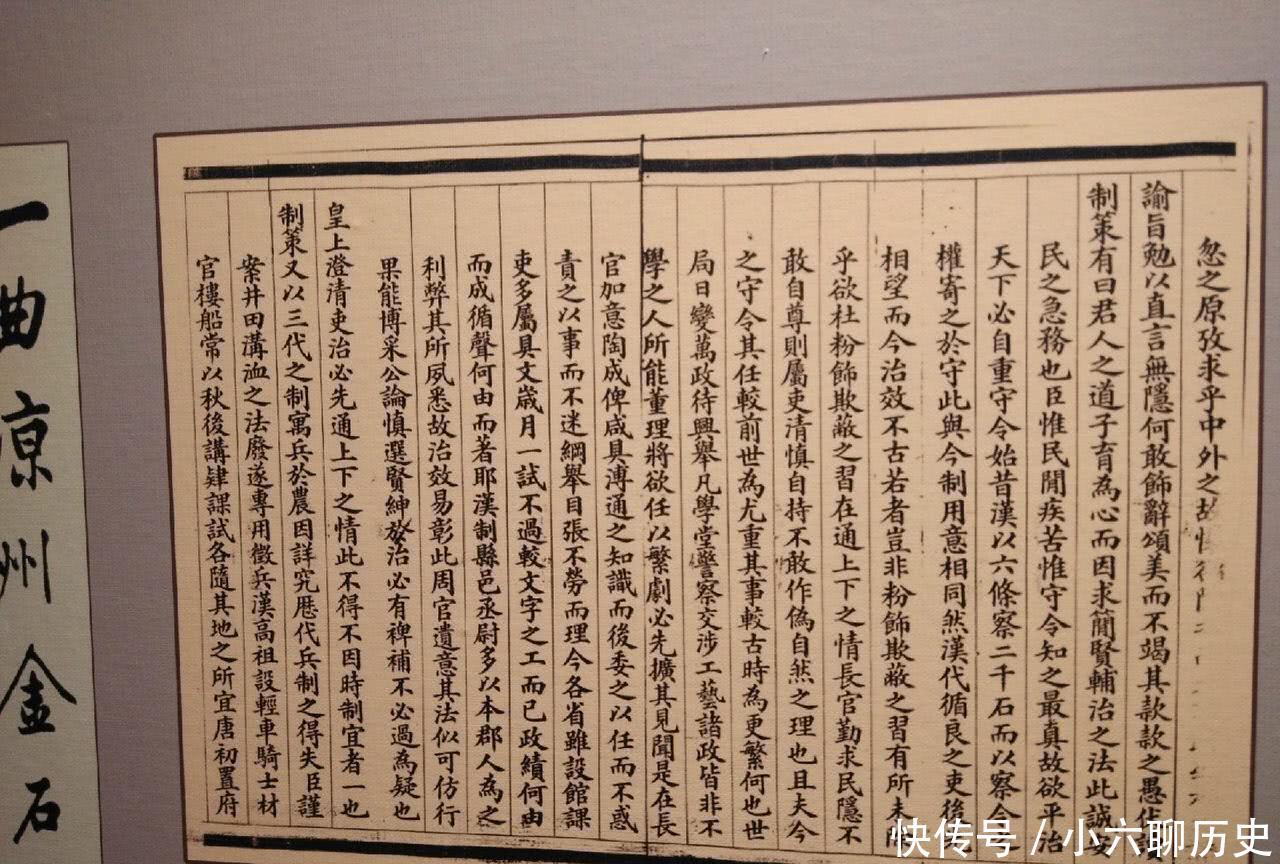 忽之原攷求乎中外之故
諭旨勉以直言無隱何敢飾辭頌美而不竭其款款之愚伏讀
制策有曰君人之道子育為心而因求簡賢輔治之法此誠安
民之急務也臣惟民閒疾苦惟守令知之最真故欲平治
天下必自重守令始昔漢以六條察二千石而以察令之
權寄之於守此與今制用意相同然漢代循良之吏後先
相望而今治效不古若者豈非粉飾欺蔽之習有所未除
乎欲杜粉飾欺蔽之習在通上下之情長官勤求民隱不
敢自尊則屬吏清慎自持不敢作偽自然之理也且夫今
之守令其任較前世為尤重其事較古時為更繁何也世
局日變萬政待興舉凡學堂警察交涉工藝諸政皆非不
學之人所能董理將欲任以繁劇必先擴其見聞是在長
官加意陶成俾咸具溥通之知識而後委之以任而不惑
責之以事而不迷綱舉目張不勞而理今各省雖設館課
吏多屬具文嵗月一試不過較文字之工而已政績何由
而成循聲何由而著耶漢制縣邑丞尉多以本郡人為之
利弊其所夙悉故治效易彰此周官遺意其法似可仿行
果能博采公論慎選賢紳於治必有裨補不必過為疑也
皇上澄清吏治必先通上下之情此不得不因時制宜者一也
制策又以三代之制寓兵於農因詳究歷代兵制之得失臣謹
案井田溝洫之法廢遂專用徵兵漢高祖設輕車騎士材
官樓船常以秋後講肄課試各隨其地之所宜唐初置府
一曲凉州金石
快传号 / 小六聊历史